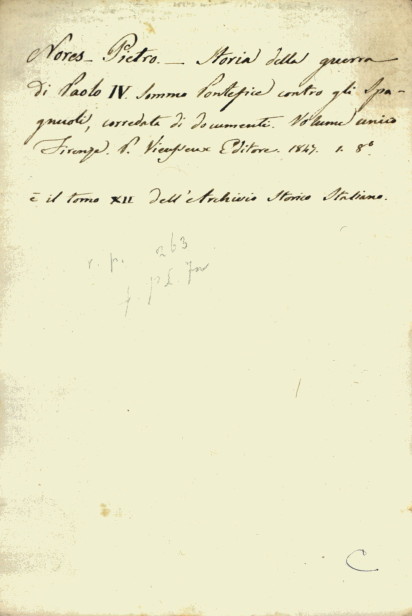 Nores Pietro. — Storia della guerra
di Paolo IV. Sommo Pontefice contro gli Spa-
gnuoli, corredata di documenti. Volume unico
Firenze. P. Vieusseux Editore. 1847. 1. 8°
È il tomo XII dell'Archivio Storico Italiano.
r. p. 263
C